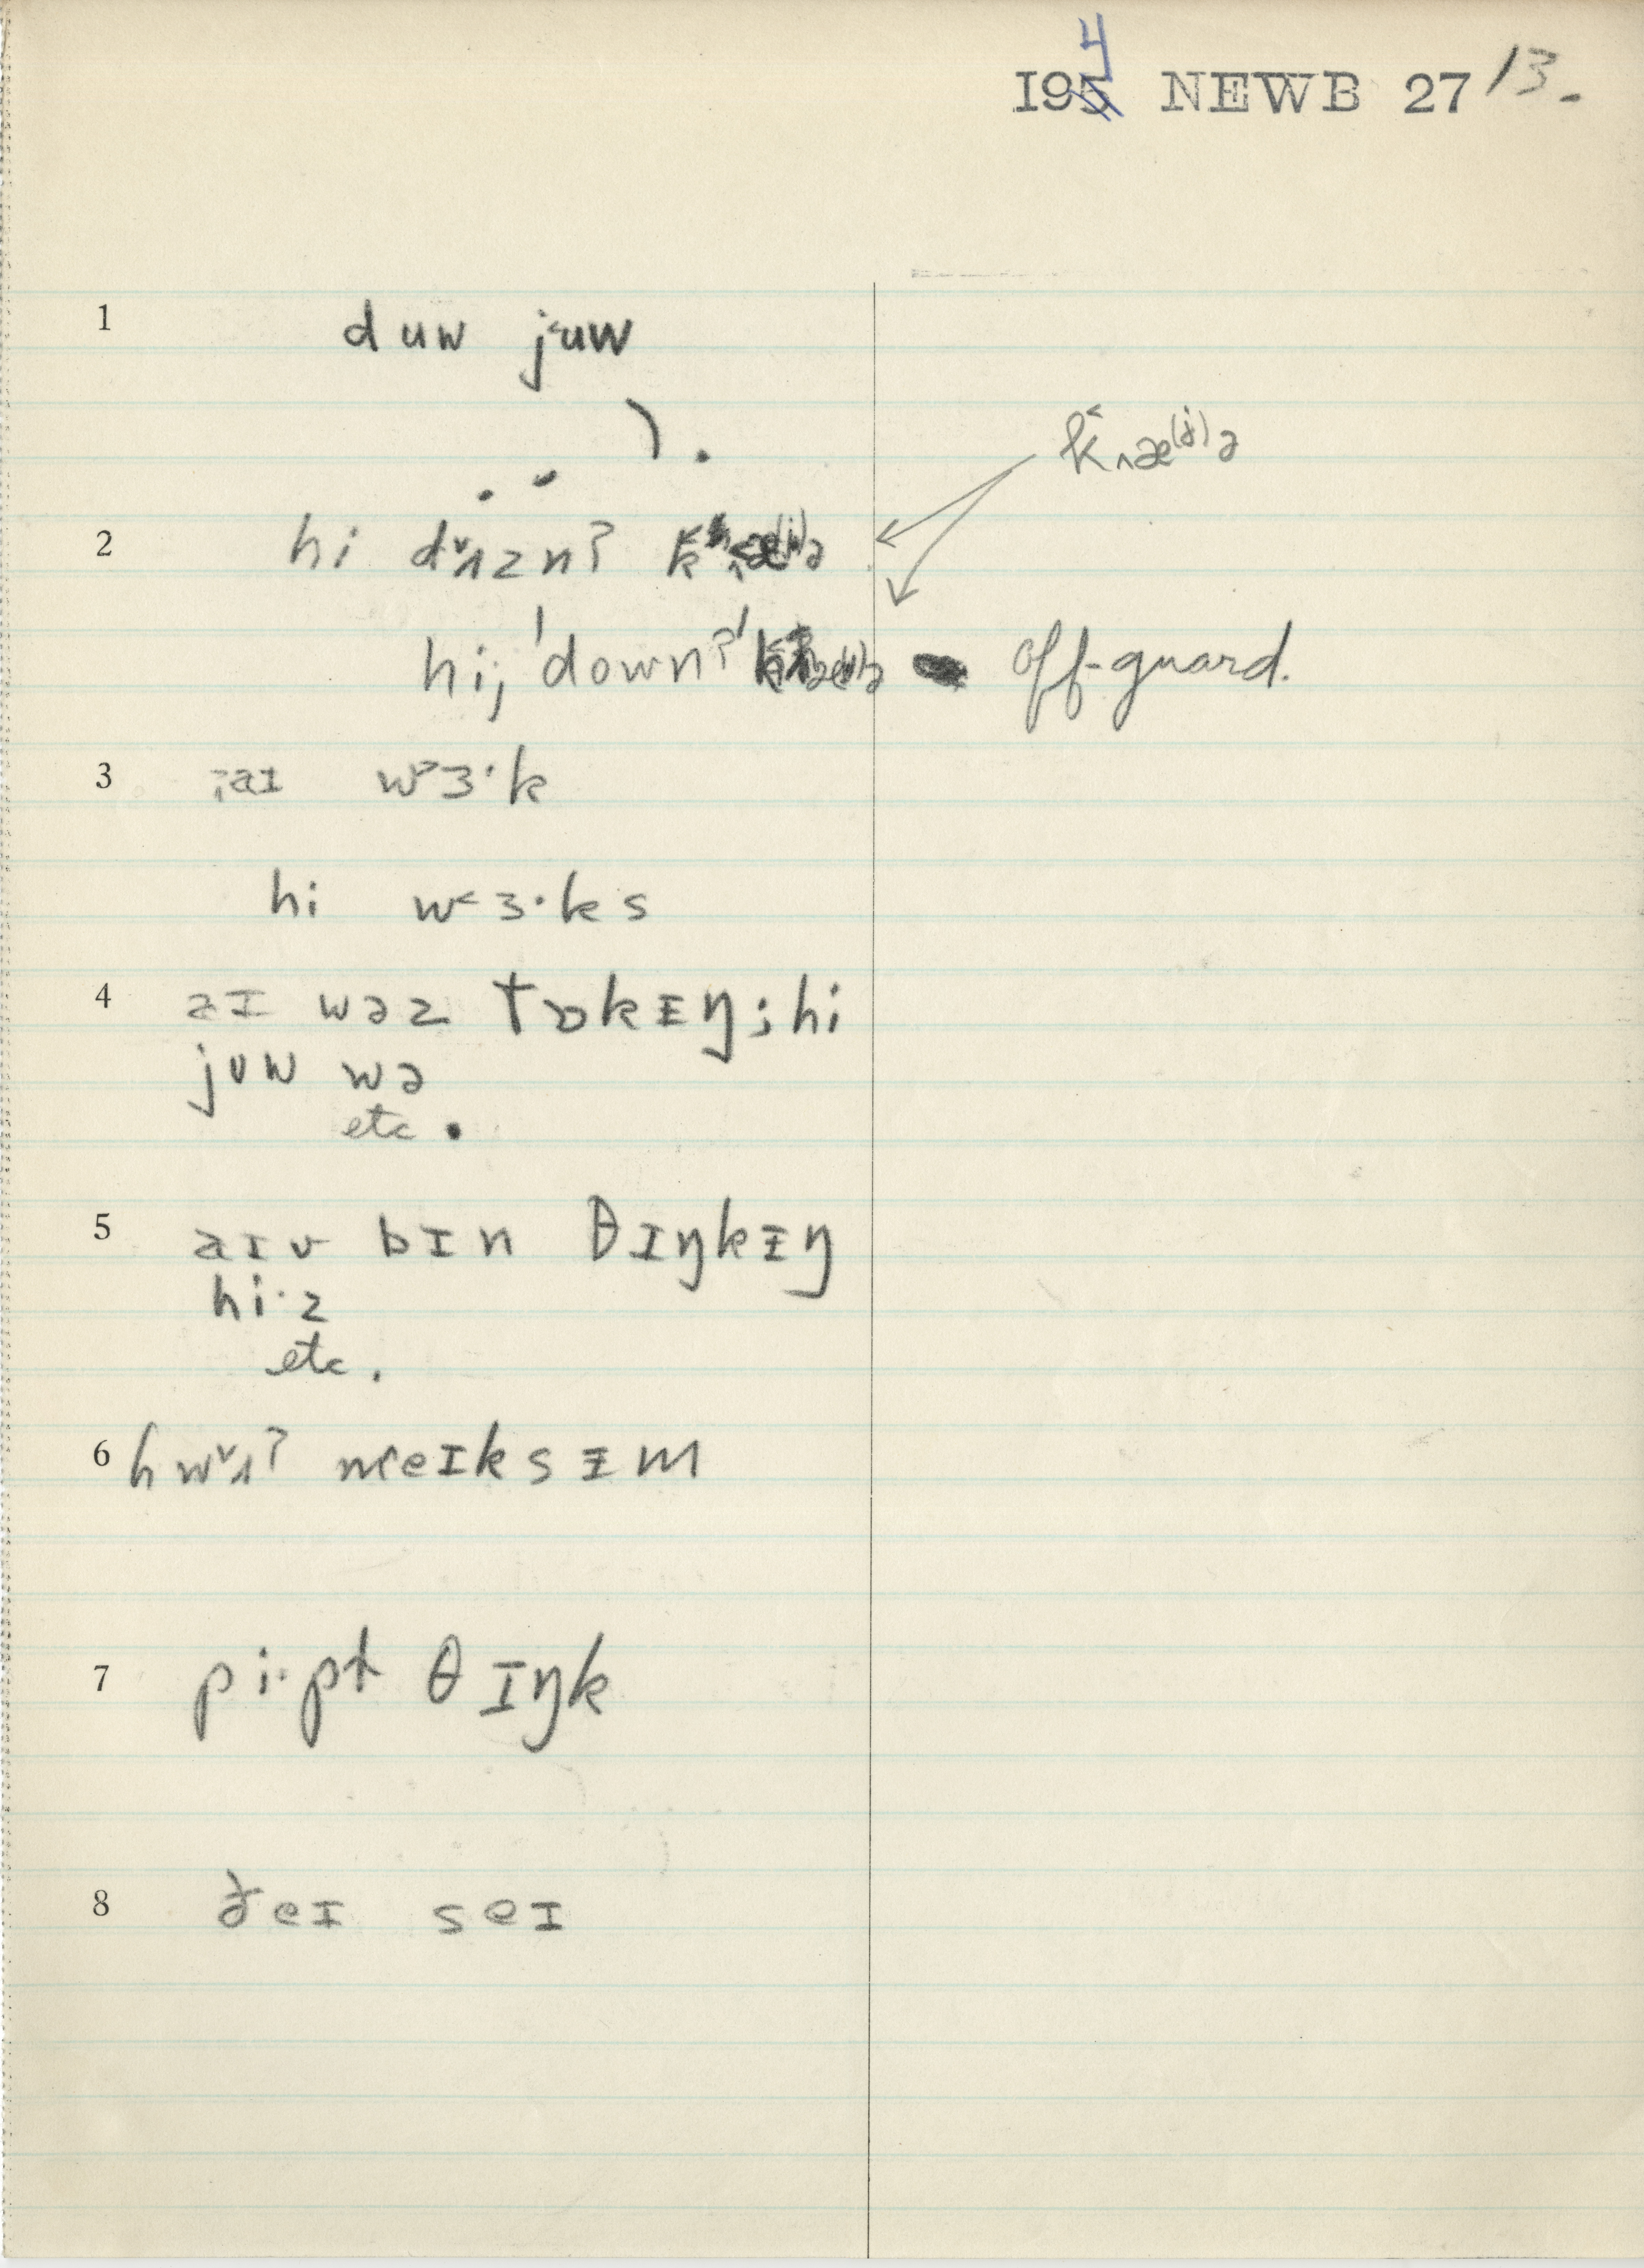 194 NEWB 27 13.
1 duw juw
k˂ʌæ⁽ʲ⁾ə
2 hi dˇʌzn?
hi; 'down?' off-guard.
3 ;aɪ w˃ɜ·k
hi w˂ɜ·ks
4 aɪ wəz tɒkᵻŋ; hi
juw wə
etc.
5 aɪv bɪn θɪŋkᵻŋ
hi·z
etc.
6 hwˇʌ? meɪksᵻm
7 pi·pɫ θɪŋk
8 ðeɪ seɪ